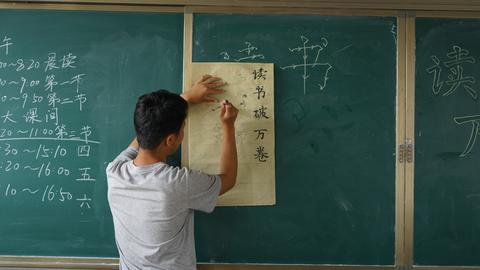 午
0~8:20 晨读
0~9:00 第一节
0~9:50 第二节
大课间
:20~11:00 第三节
:30~15:10 四
:20~16:00 五
:10~16:50 六
读书破万卷
书
读
万